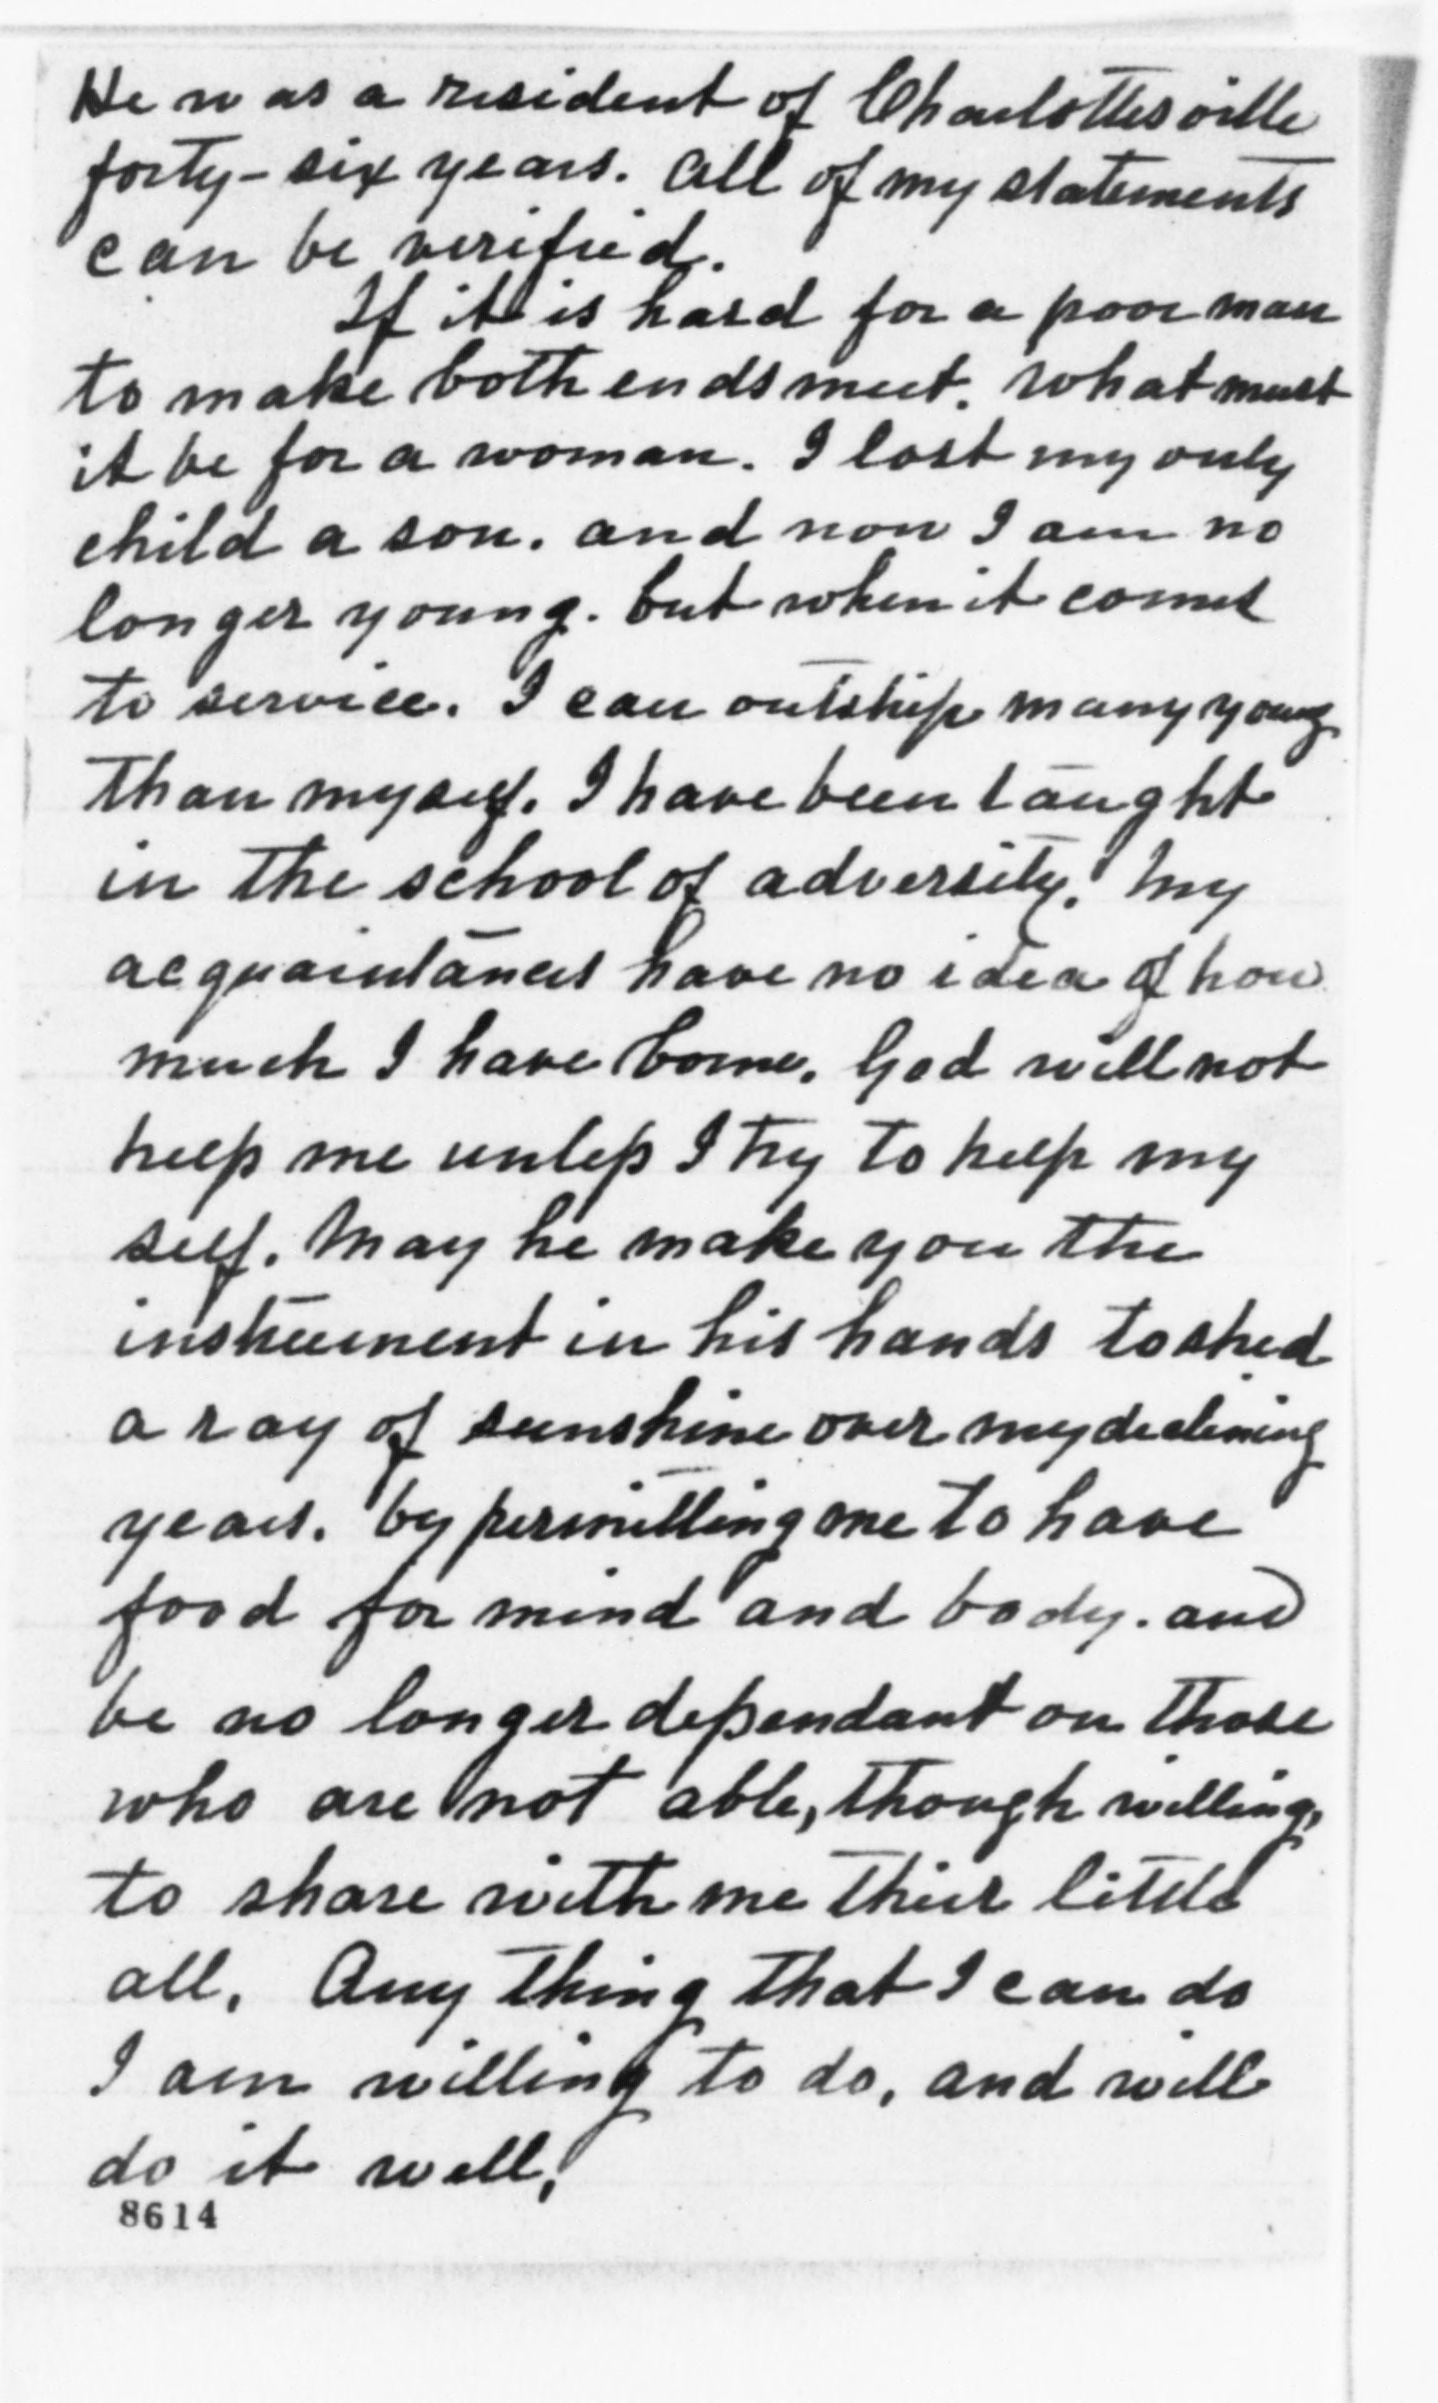 He was a resident of Charlottesville
forty-six years. All of my statements
can be verified.
If it is hard for a poor man
to make both ends meet. What must
it be for a woman. I lost my only
child a son. and now I am no
longer young. but when it comes
to service. I can outstrip many young
than myself. I have been taught
in the school of adversity. My
acquaintances have no idea of how
much I have borne. God will not
help me unless I try to help my
self. May he make you the
instrument in his hands to shed
a ray of sunshine over my declining
years. by permitting me to have
food for mind and body. and
be no longer dependant on those
who are not able, though willing,
to share with me their little
all. Any thing that I can do
I am willing to do, and will
do it well,
8614